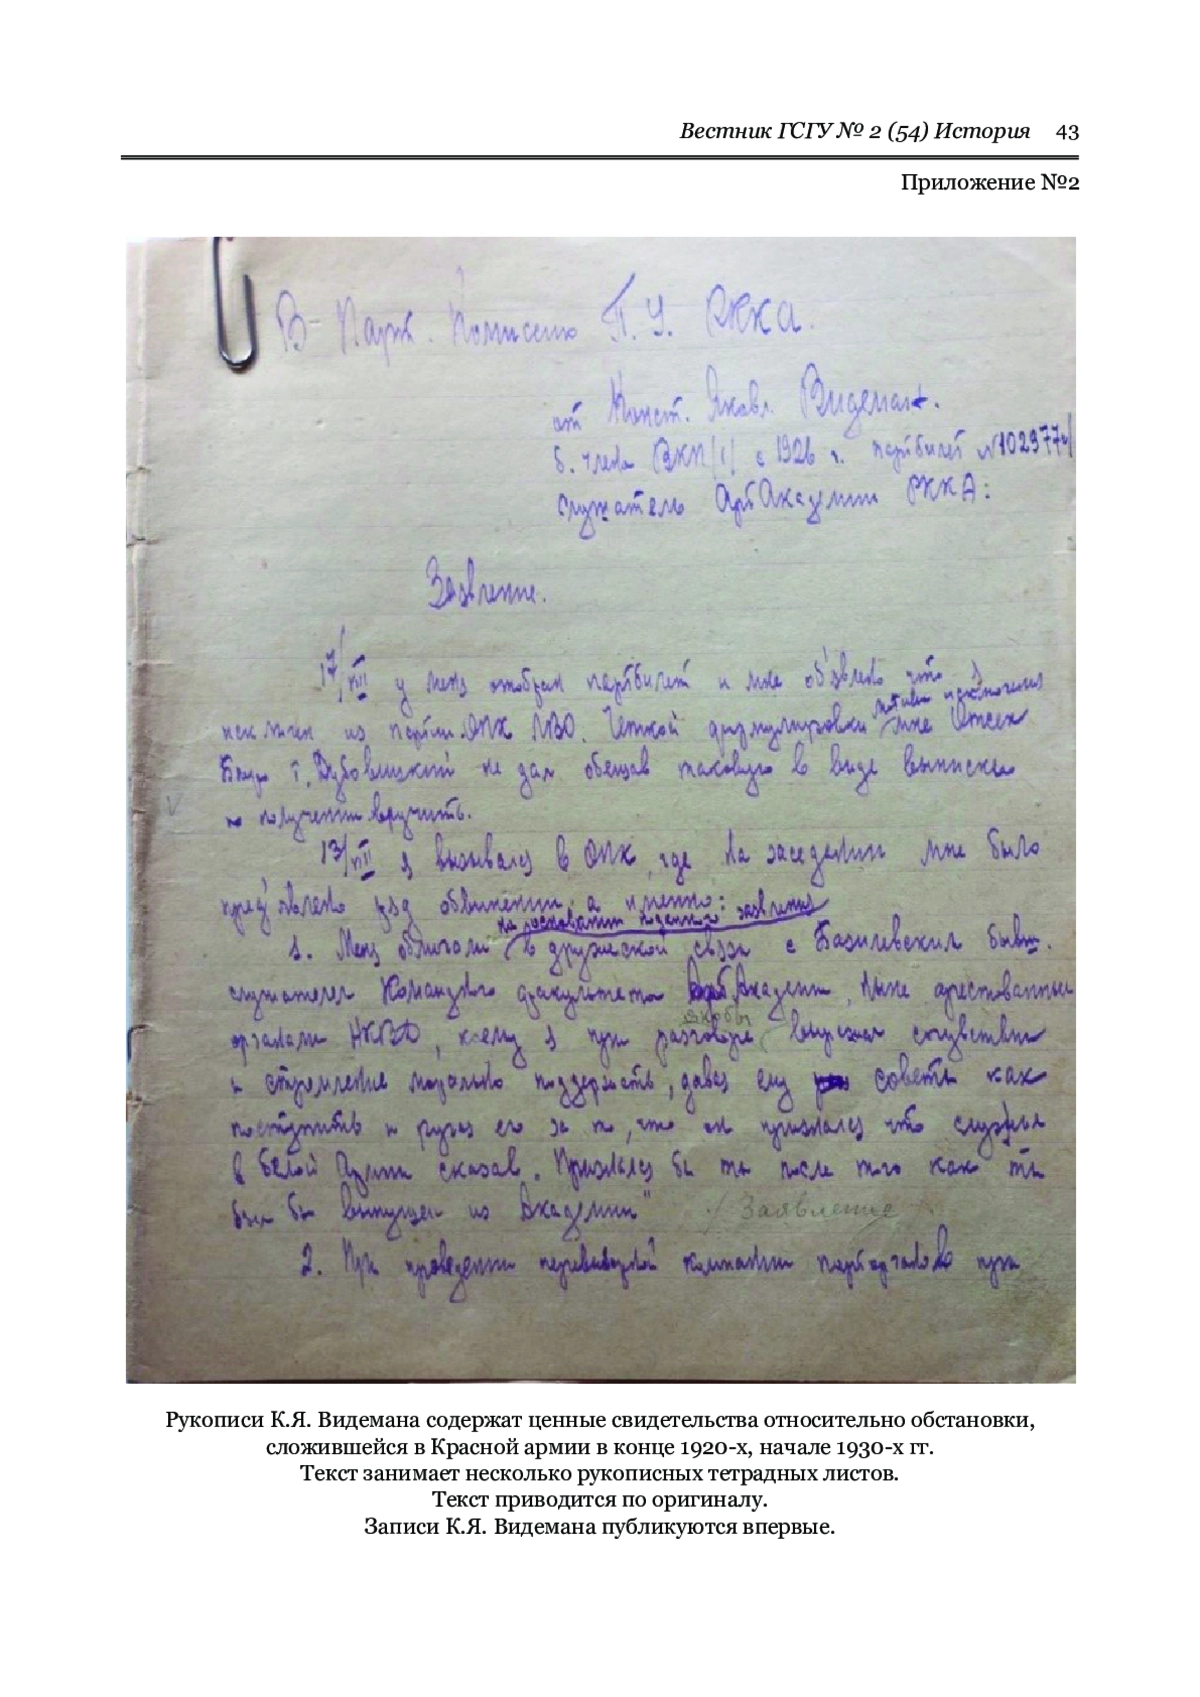 Вестник ГСГУ № 2 (54) История 43
Приложение №2
В Парт. Комиссию П.У. РККА.
от Конст. Яковл. Видеман.
б. члена ВКП/б/ с 1926 г. партбилет №1029774/
слушатель АртАкадемии РККА:
Заявление.
17/VIII у меня отобран партбилет и мне объявлено что я
мотивов исключения
исключен из партии ОПК ЛВО. Четкой формулировки мне Отсек
Бюро т. Дубовицкий не дал обещав таковую в виде выписки
по получении вручить.
13/VIII я вызывался в ОПК, где на заседании мне было
пред'явлено ряд обвинений а именно:
на основании поданного заявления
1. Меня обличали в дружеской связи с Базилевским бывш.
слушателем Командного факультета АртАкадемии, ныне арестованным
якобы
органами НКВД, коему я при разговоре выражал сочувствие
и стремление морально поддержать, давая ему советы как
поступить и ругая его за то, что он признался что служил
в белой Армии сказав. "Признался бы ты после того как ты
был бы выпущен из Академии"
/ Заявление
2. При проведении перевыборной кампании парторганов при
Рукописи К.Я. Видемана содержат ценные свидетельства относительно обстановки,
сложившейся в Красной армии в конце 1920-х, начале 1930-х гг.
Текст занимает несколько рукописных тетрадных листов.
Текст приводится по оригиналу.
Записи К.Я. Видемана публикуются впервые.